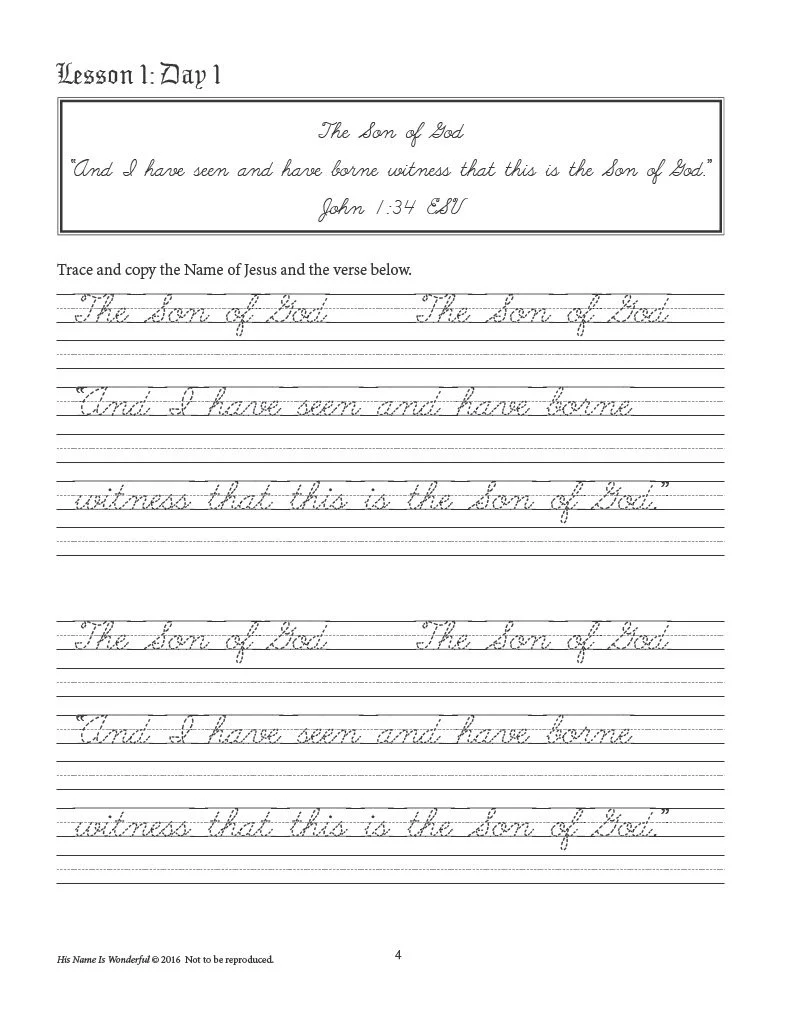 Lesson 1: Day 1
The Son of God
"And I have seen and have borne witness that this is the Son of God."
John 1:34 ESV
Trace and copy the Name of Jesus and the verse below.
The Son of God The Son of God
"And I have seen and have borne
witness that this is the Son of God."
The Son of God The Son of God
"And I have seen and have borne
witness that this is the Son of God."
His Name Is Wonderful © 2016 Not to be reproduced.
4